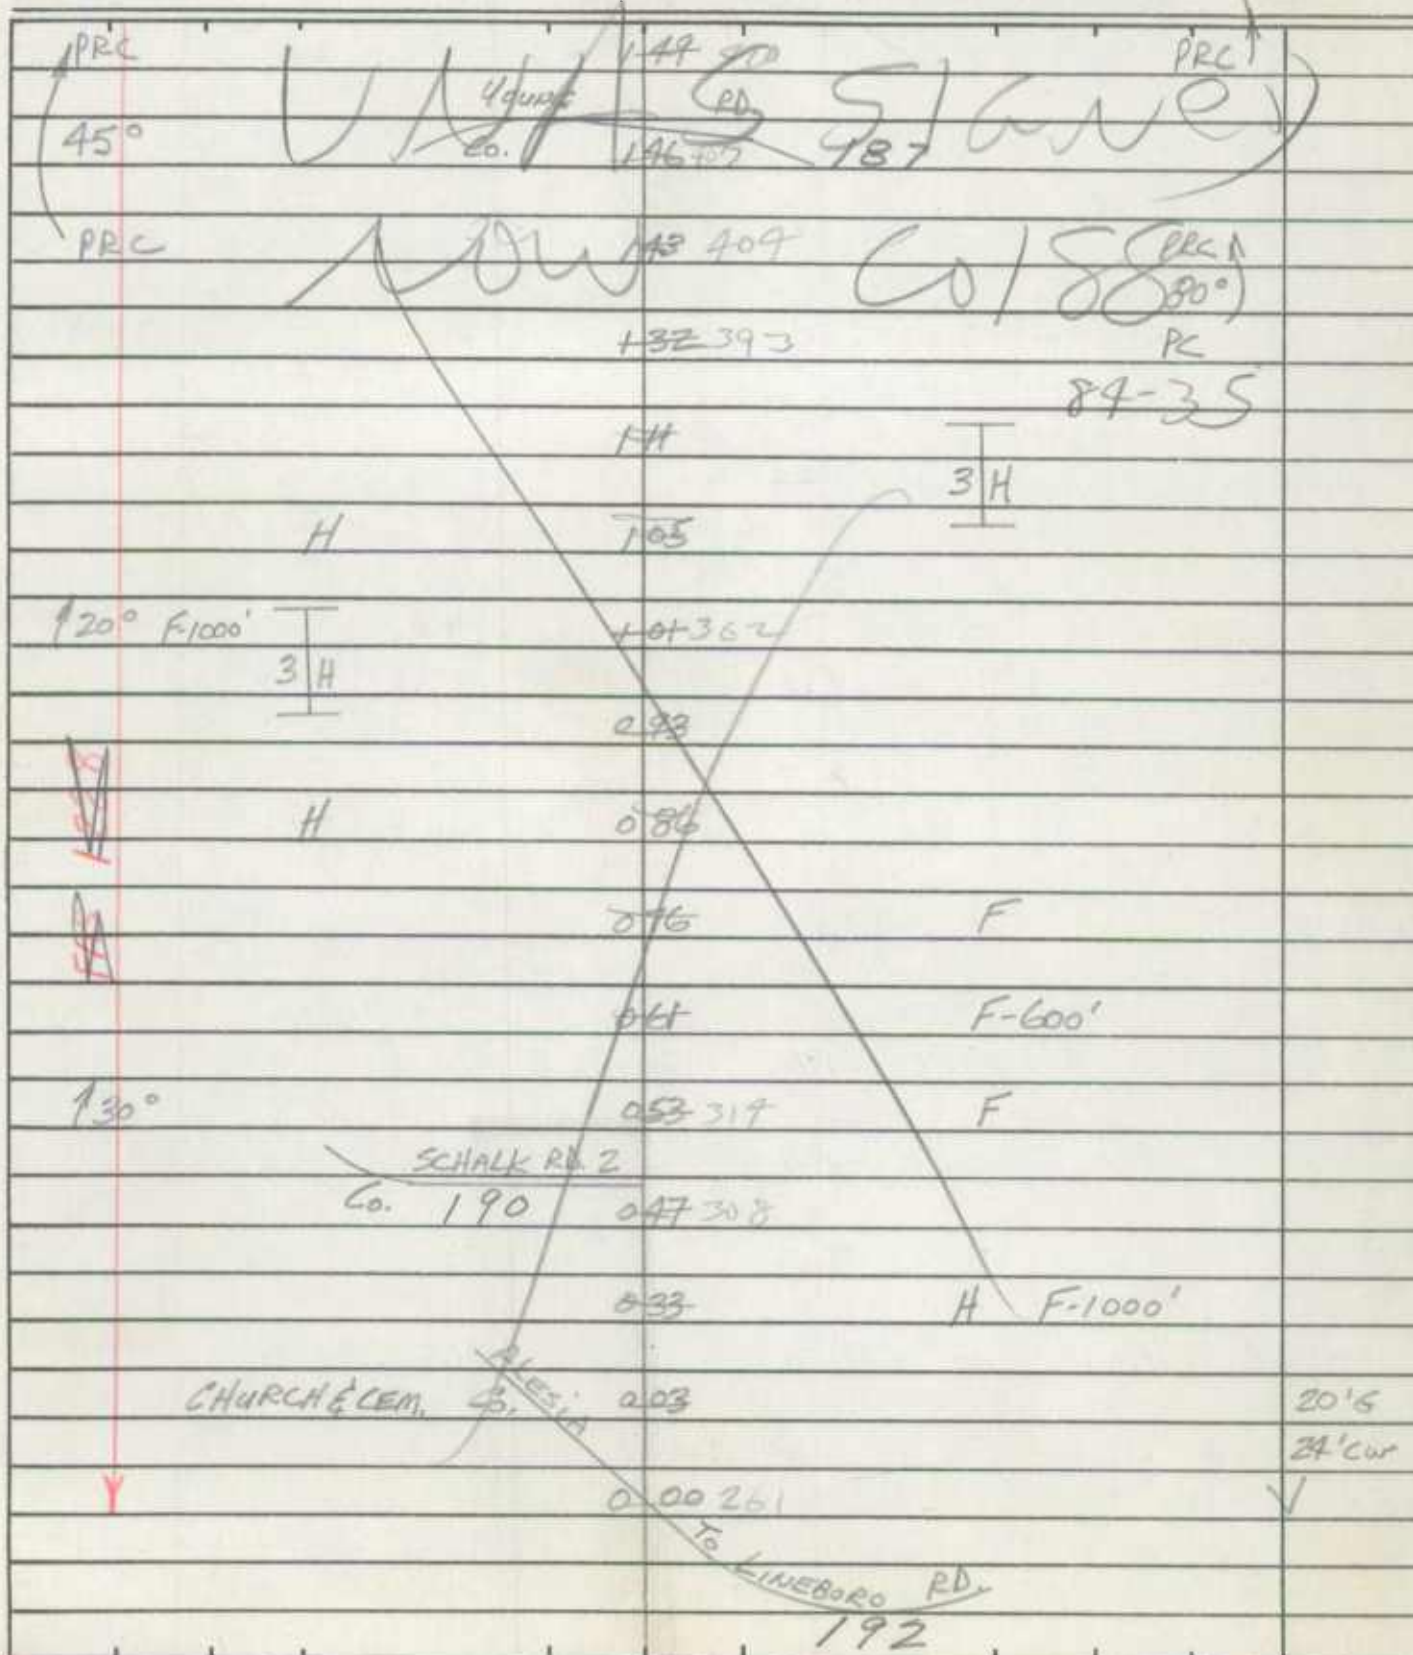 PRC 1.49 PRC
RD.
45° Co. 1.46 407 187
PRC NOW 1.43 404 Co188 PRC
80°
1.32 393 PC
84-35
1.11
3 H
H 1.05
20° F-1000' 1.01 362
3 H
0.93
H 0.86
0.76 F
0.61 F-600'
30° 0.53 314 F
SCHALK RD. 2
Co. 190 0.47 308
0.33 H F-1000'
ALESIA
CHURCH & CEM. Co. 0.03 20'G
24'
0.00 261
TO LINEBORO RD.
192